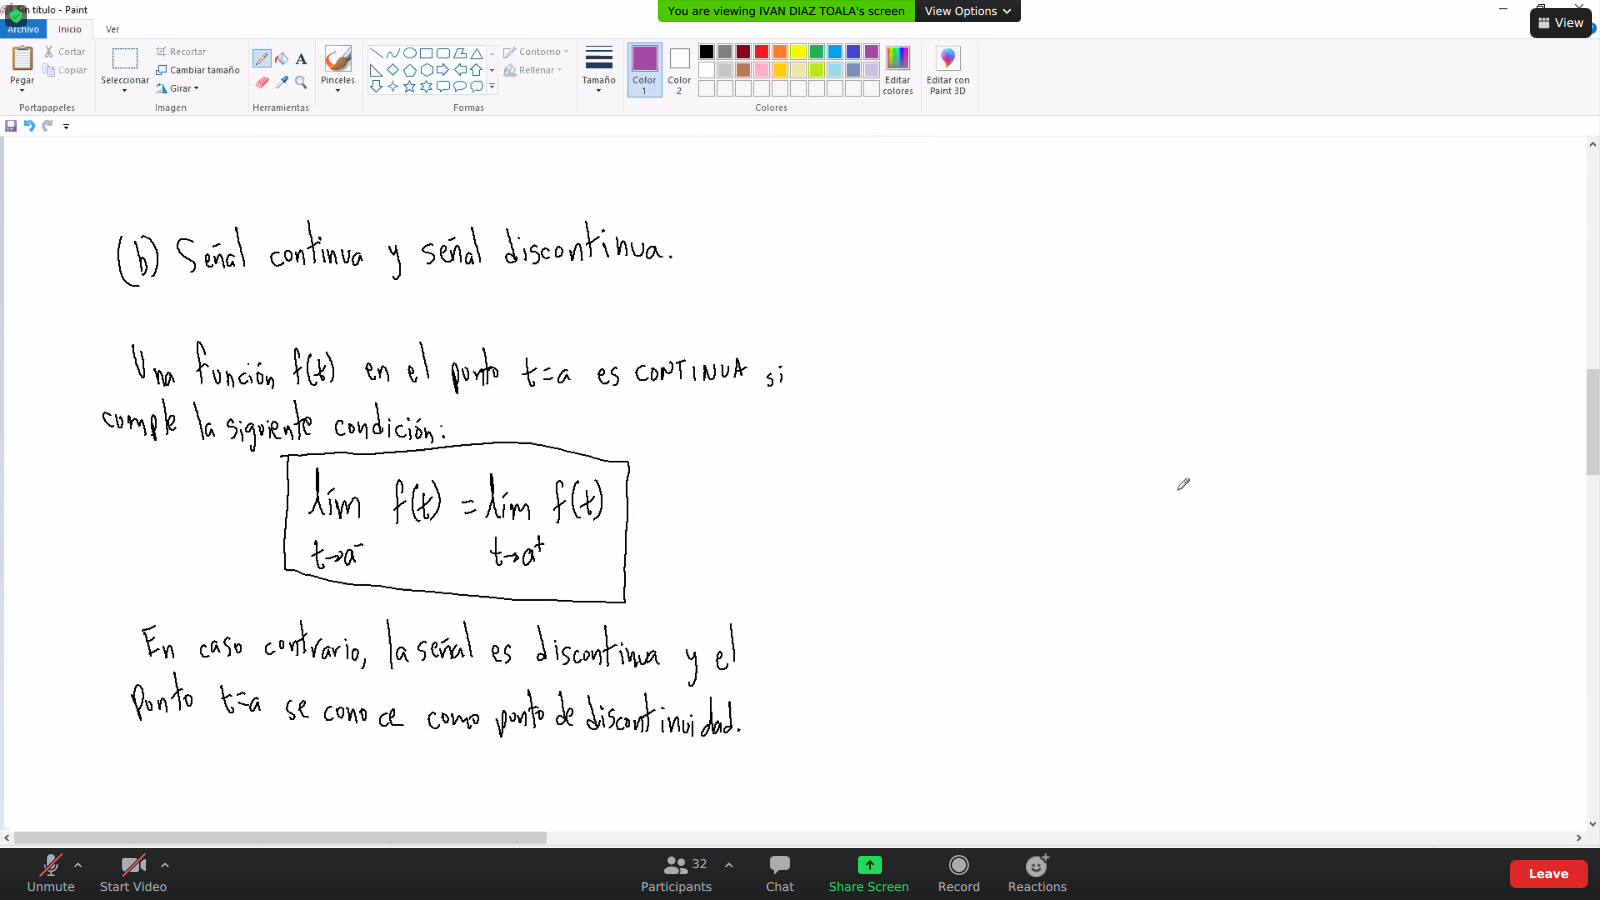 Sin título - Paint
You are viewing IVAN DIAZ TOALA's screen
View Options
View
Archivo
Inicio
Ver
Pegar
Cortar
Copiar
Portapapeles
Seleccionar
Recortar
Cambiar tamaño
Girar
Imagen
A
Herramientas
Pinceles
Contorno
Rellenar
Formas
Tamaño
Color 1
Color 2
Editar colores
Colores
Editar con Paint 3D
(b) Señal continua y señal discontinua.
Una función f(t) en el punto t=a es CONTINUA si
cumple la siguiente condición:
lím f(t) = lím f(t)
t→a⁻ t→a⁺
En caso contrario, la señal es discontinua y el
Punto t=a se conoce como punto de discontinuidad.
Unmute
Start Video
Participants
32
Chat
Share Screen
Record
Reactions
Leave